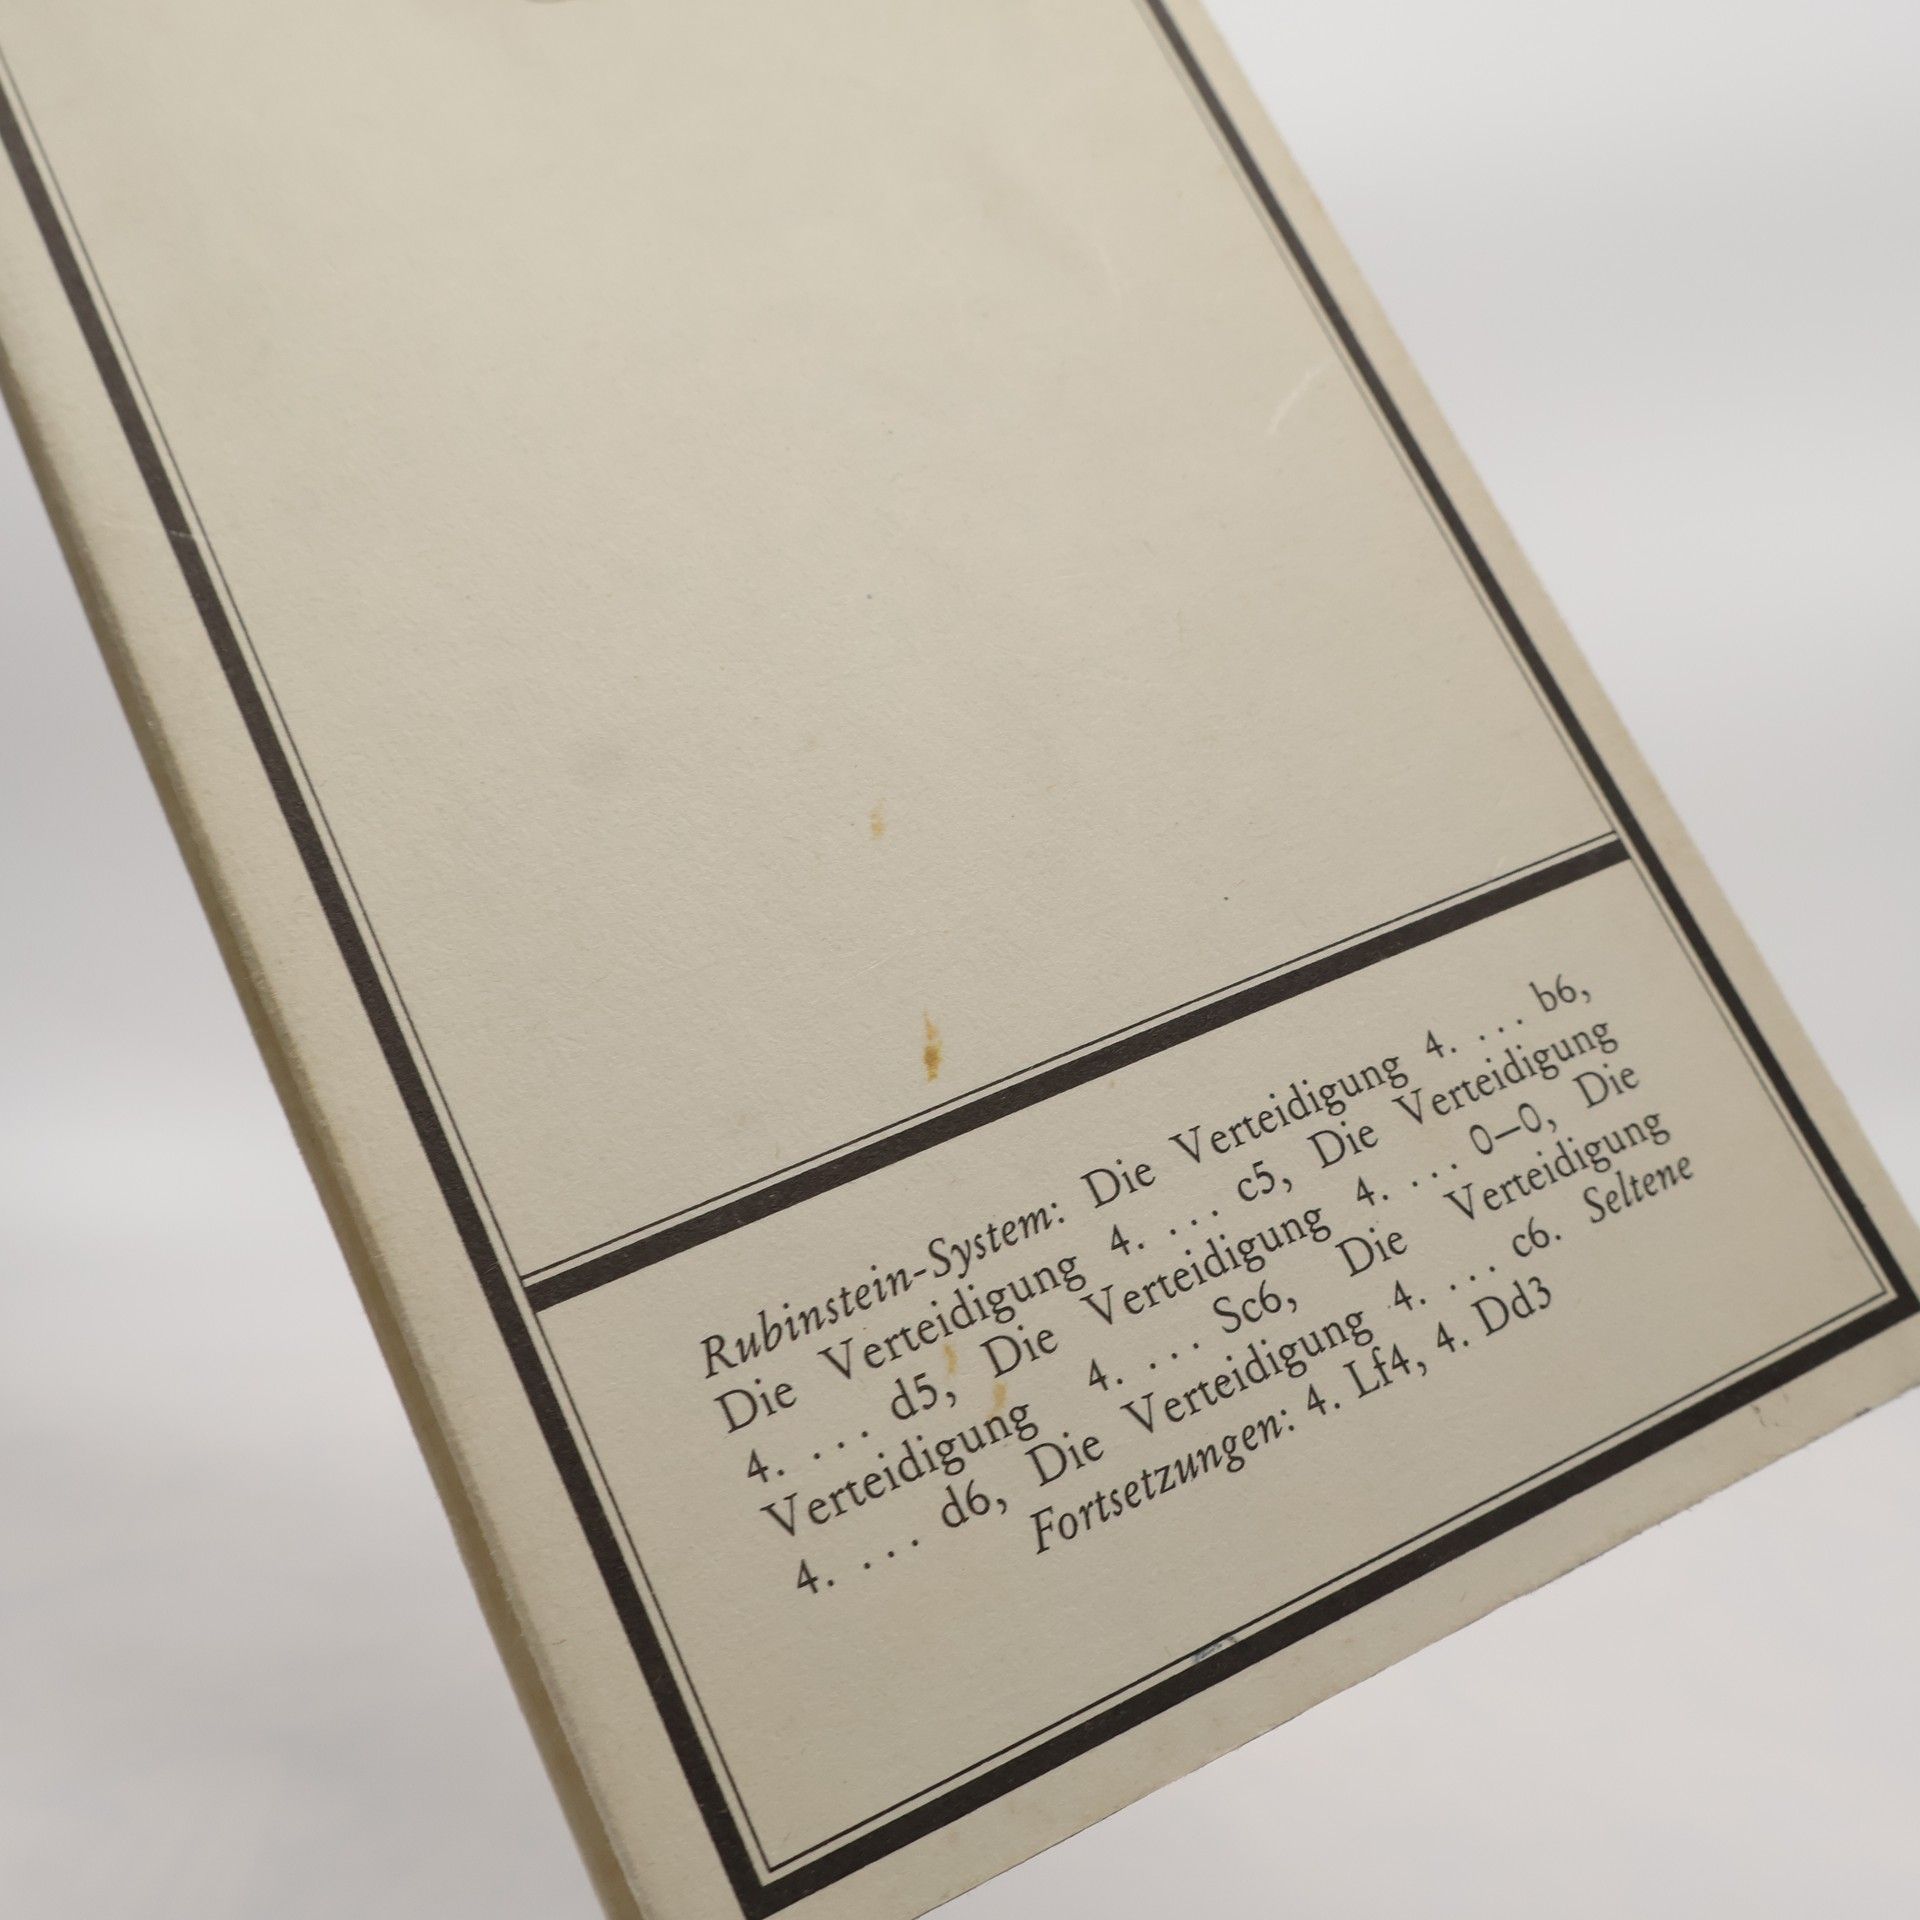 Rubinstein-System: Die Verteidigung 4. ... b6,
Die Verteidigung 4. ... c5, Die Verteidigung
4. ... d5, Die Verteidigung 4. ... 0–0, Die
Verteidigung 4. ... Sc6, Die Verteidigung
4. ... d6, Die Verteidigung 4. ... c6. Seltene
Fortsetzungen: 4. Lf4, 4. Dd3